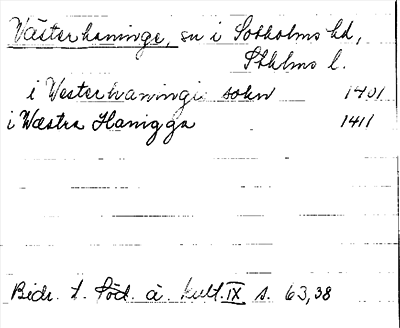 Västerhaninge, sn i Sotholms hd,
Sthlms l.
i Vesterhaningi sokn 1401
i Wæstra Hanigga 1411
Bidr. t. Söd. ä. kult. IX s. 63, 38